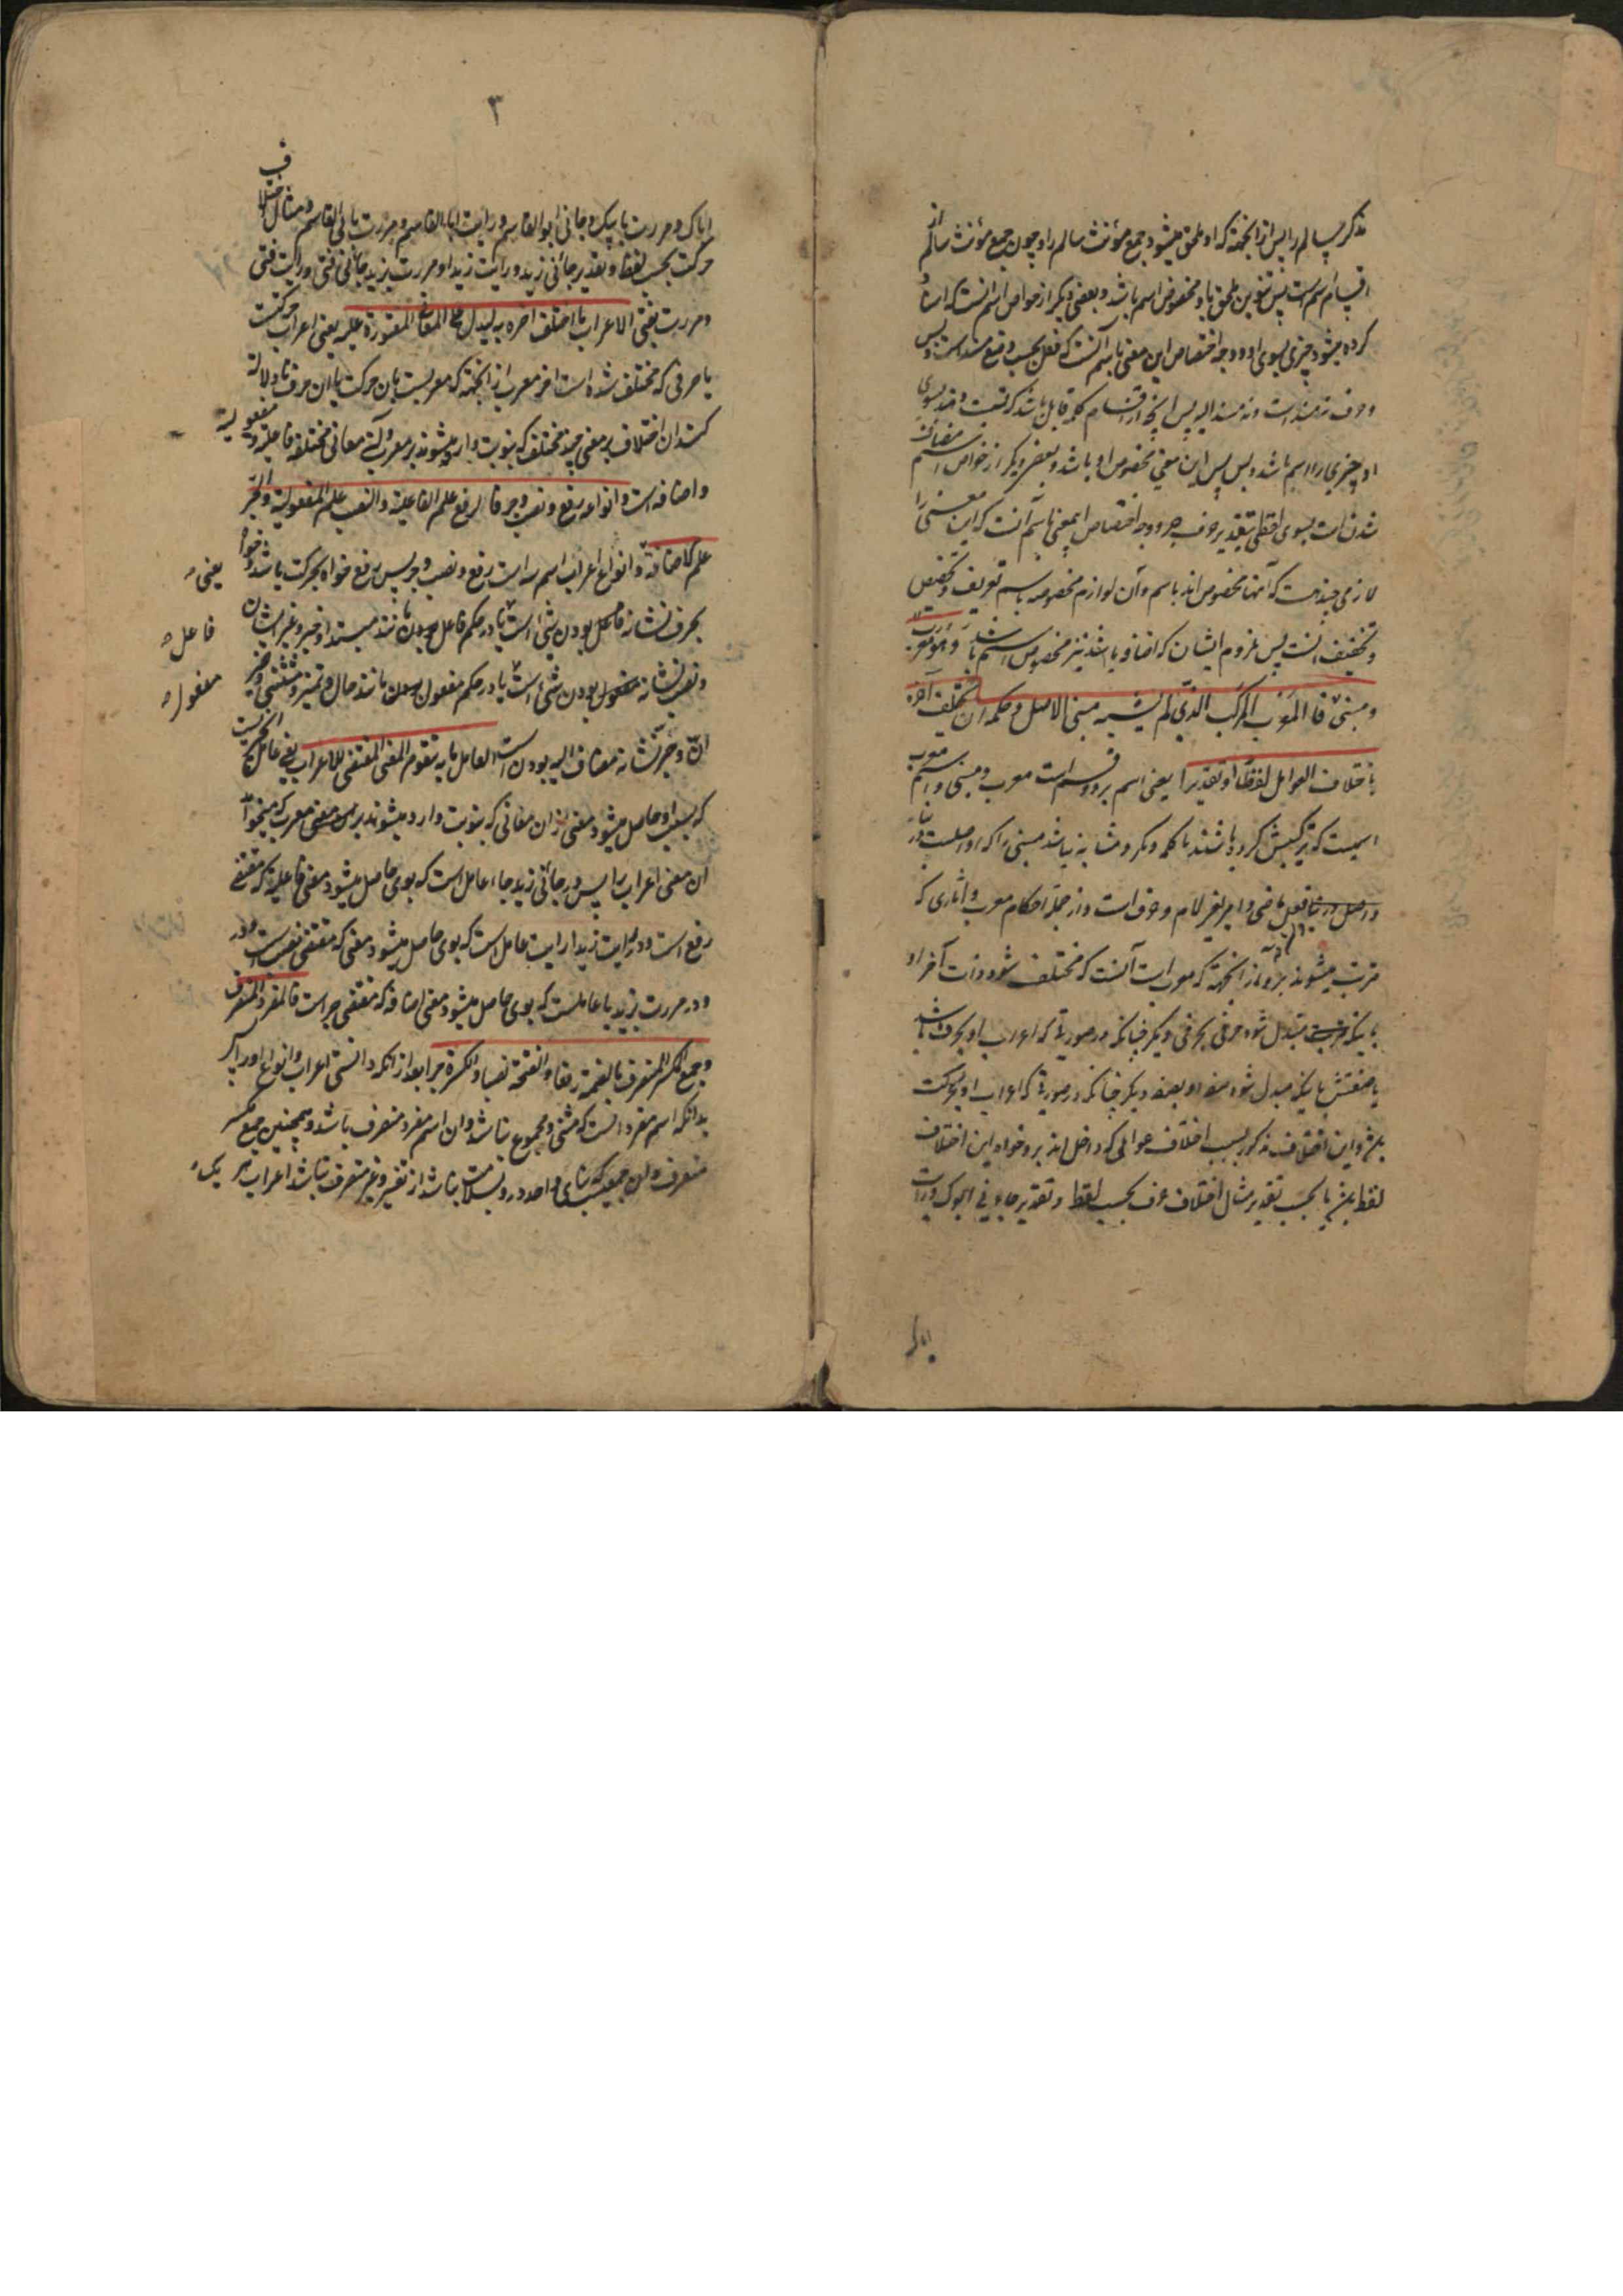 مذکر سالم را پس از انجهة که او ملحق میشود جمع مؤنث سالم را و چون جمع مؤنث سالم از
اقسام اسم است پس تنوین ملحق باو مخصوص اسم باشد و بعضی دیگر از خواص اسم انست که اسناد
کرده میشود چیزی بسوی او و وجه اختصاص این معنی باسم آنست که فعل بحسب وضع مسند است و بس
و حرف نه مسند است و نه مسند الیه پس انچه از اقسام کلمه قابل باشد که نسبت دهند بسوی
او چیزی را اسم باشد و بس پس این معنی مخصوص او باشد و بعضی دیگر از خواص اسم مضاف
شدن است بسوی لفظی بتقدیر حرف جر و وجه اختصاص اینمعنی باسم آنست که این معنی را
لازمی چندست که آنها مخصوص اند باسم و آن لوازم مخصوصه باسم تعریف و تخصیص
و تخفیف است پس ملزوم ایشان که اضافة باشد نیز مخصوص اسم باشد و هو معرب
و مبنی فالمعرب المرکب الذی لم یشبه مبنی الاصل و حکمه ان یختلف آخره
باختلاف العوامل لفظا او تقدیرا یعنی اسم بر دو قسم است معرب و مبنی و اسم معرب
اسمیست که ترکیبش کرده باشند با کلمه دیگر و مشابه نباشد مبنی را که او اصلست در بنا
و اصل در بنا فعل ماضی و امر بغیر لام و حرف است و از جمله احکام معرب و آثاری که
مرتب میشوند بر و از انجهة که معرب است آنست که مختلف شود ذات آخر او
باینکه مبتدل شود حرفی بحرفی دیگر چنانکه در صورتی که اعراب او بحرف باشد
یا صفتش باینکه مبدل شود صفة او بصفة دیگر چنانکه در صورتی که اعراب او بحرکت
باشد و این اختلاف مذکور بسبب اختلاف عواملی که داخل اند بر و خواه این اختلاف
لفظا باشد یا بحسب تقدیر مثال اختلاف حرف بحسب لفظ و تقدیر جاءنی ابوک و رایت
اباک
۳
اباک و مررت بابیک و جائنی ابو القاسم و رایت ابا القاسم و مررت بابی القاسم و مثال اختلاف
حرکت بحسب لفظ و تقدیر جائنی زید و رایت زیدا و مررت بزید جائنی فتی و رایت فتی
و مررت بفتی الاعراب ما اختلف آخره به لیدل علی المعانی المعتورة علیه یعنی اعراب حرکتست
یا حرفی که مختلف شده است آخر معرب از انجهة که معربست بان حرکت یا ان حرف تا دلالة
کند ان اختلاف بر معنی چند مختلف که بنوبت وارد میشوند بر معرب و آن معانی مختلفه فاعلیة و مفعولیة
و اضافه است و انواعه رفع و نصب و جر فالرفع علم الفاعلیة و النصب علم المفعولیة و الجر
علم الاضافة و انواع اعراب اسم سه است رفع و نصب و جر پس رفع خواه بحرکت باشد و خواه
بحرف نشانه فاعل بودن شی است یا در حکم فاعل بودن مانند مبتدا و خبر و غیر ایشان
و نصب نشانه مفعول بودن شی است یا در حکم مفعول بودن مانند حال و تمیز و مستثنی و خبر
ان و جر نشانه مضاف الیه بودن است العامل ما به یتقوم المعنی المقتضی للاعراب یعنی عامل چیزیست
که بسبب او حاصل میشود معنی از ان معانی که بنوبت وارد میشوند بر معرب که میخواهد
ان معنی اعراب را پس در جائنی زید جاء عامل است که بوی حاصل میشود معنی فاعلیة که مقتضی
رفع است و در رایت زیدا رایت عامل است که بوی حاصل میشود معنی که مقتضی نصب است
و در مررت بزید با عاملست که بوی حاصل میشود معنی اضافة که مقتضی جر است فالمفرد المنصرف
و الجمع المکسر المنصرف بالضمة رفعا و الفتحة نصبا و الکسرة جرا بعد از انکه دانستی اعراب و انواع او را پس
بدانکه اسم مفرد انست که مثنی و مجموع نباشد و ان اسم مفرد منصرف باشد و همچنین جمع مکسر
منصرف و ان جمعیست که بنای واحد در و بسلامت نباشد از تغییر و غیر منصرف نباشد اعراب هر یک
یعنی
فاعل
مفعول